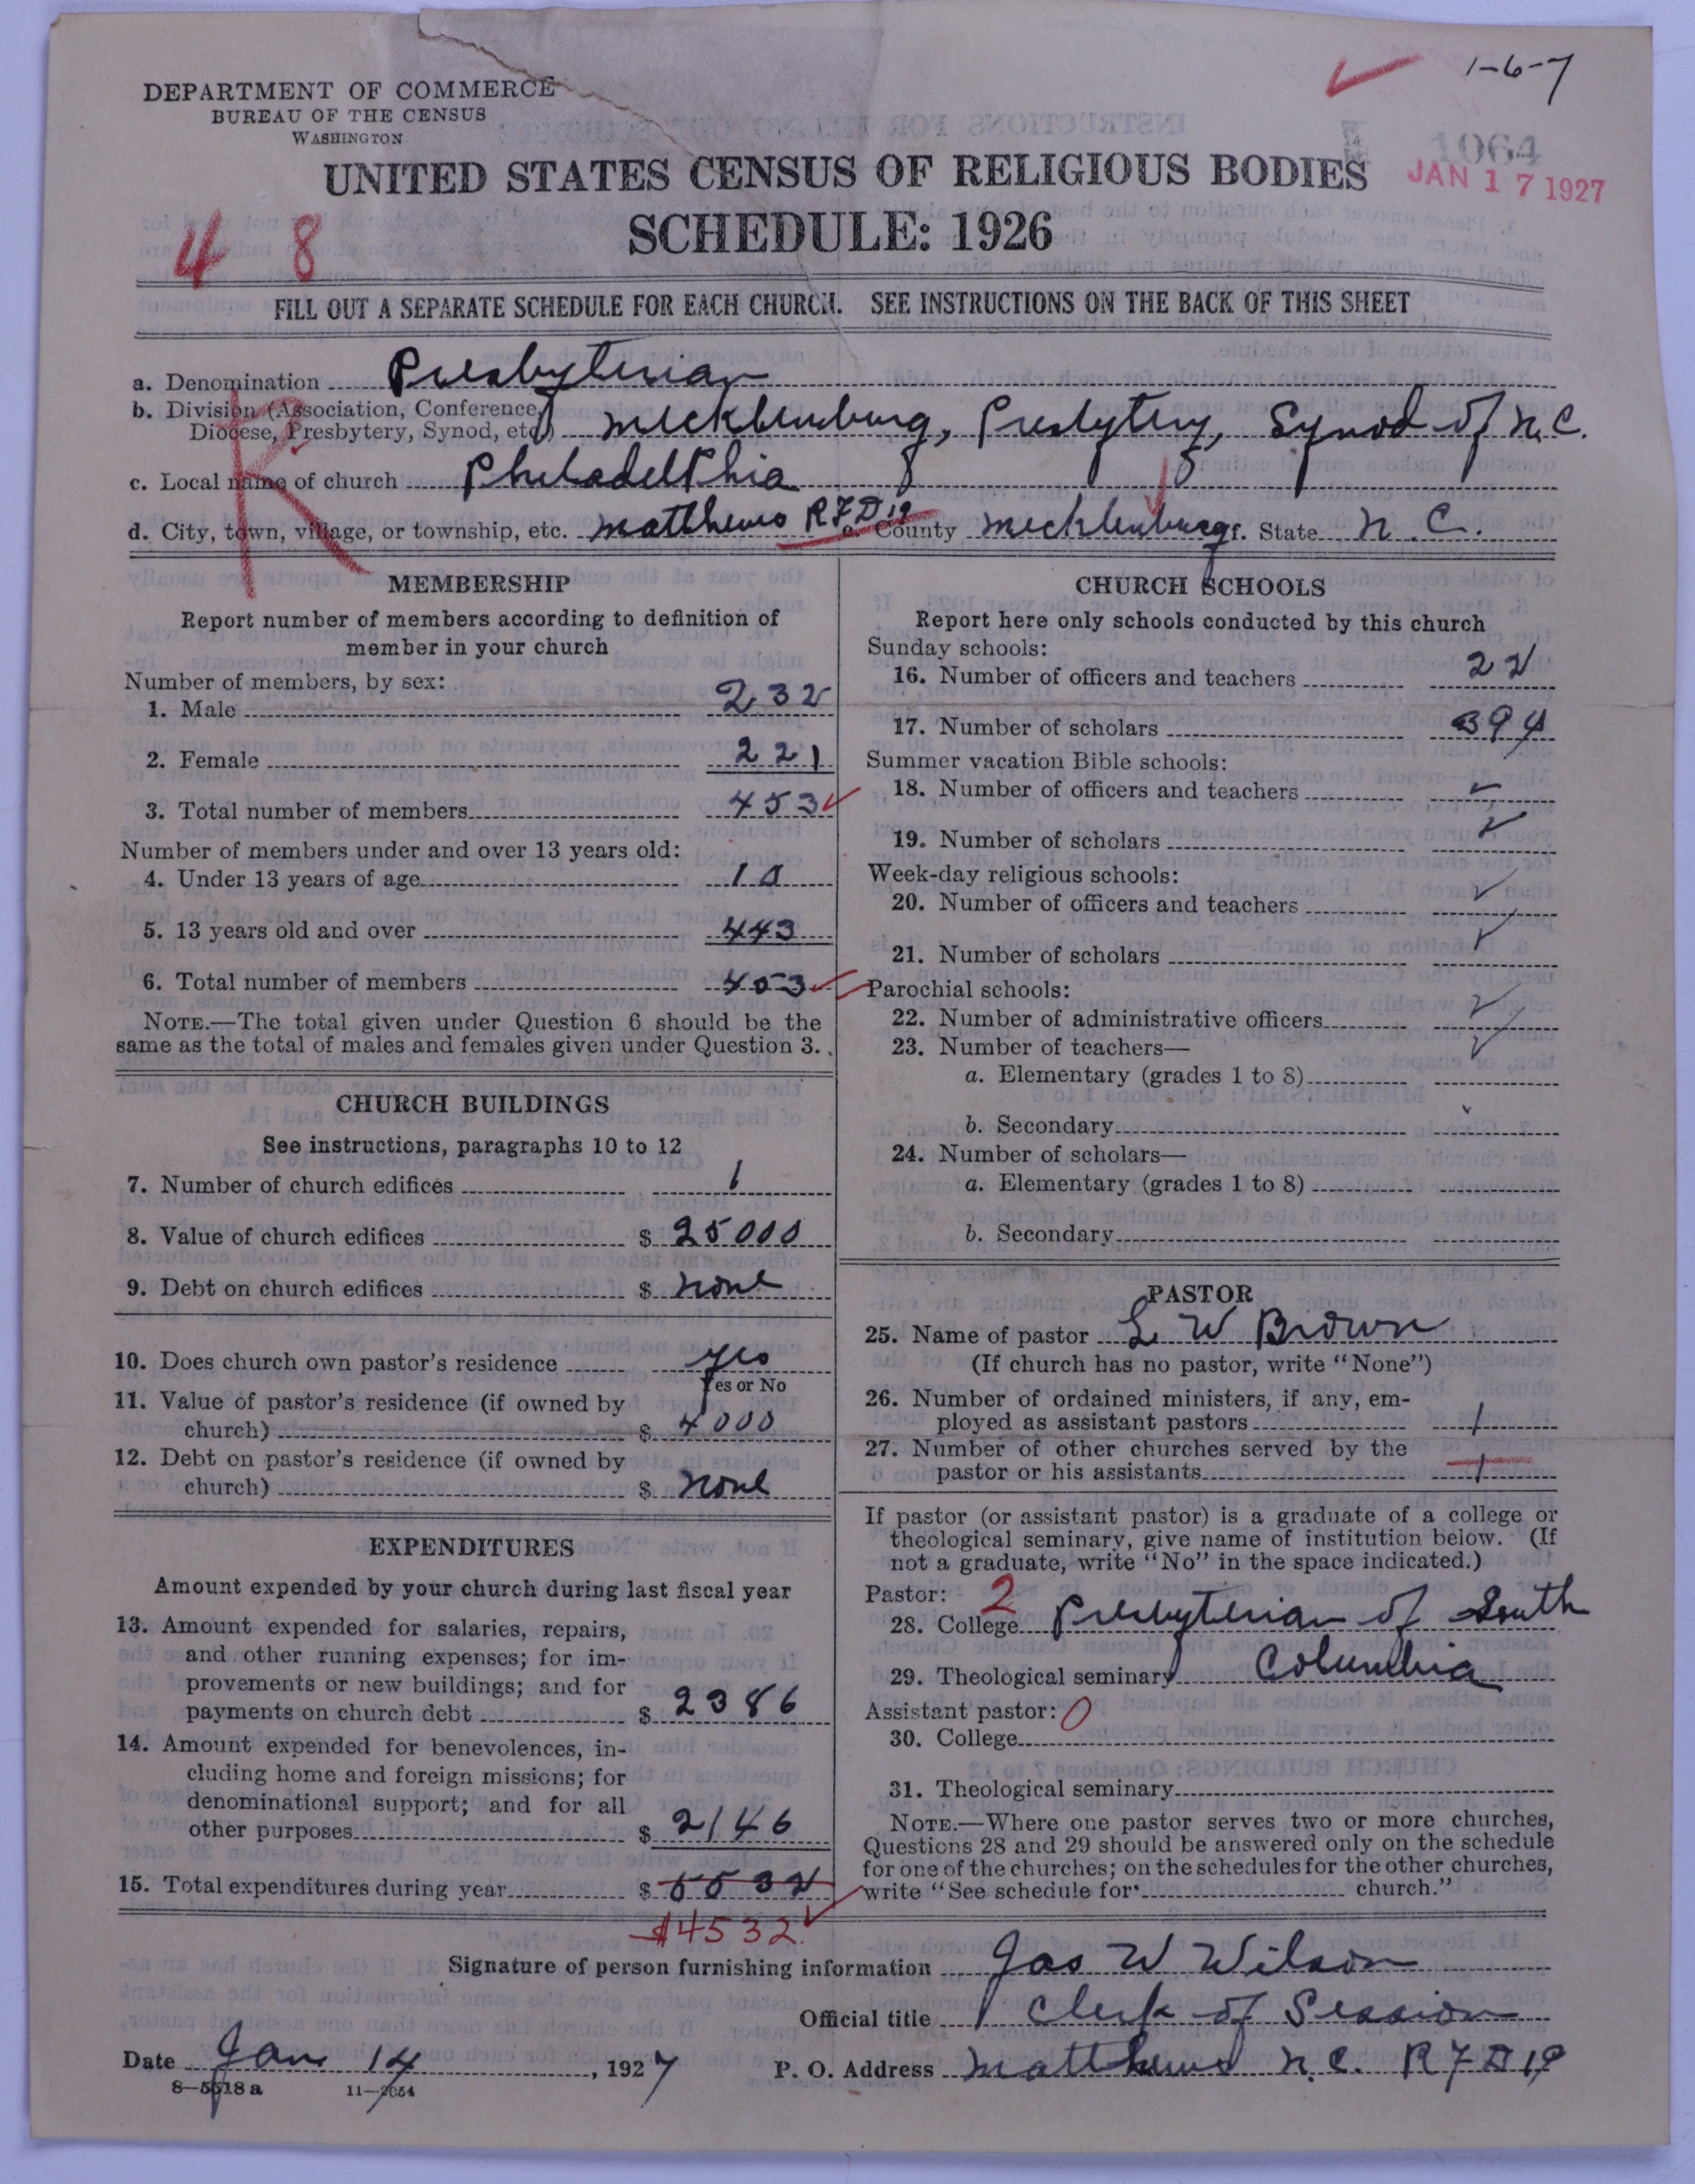 1-6-7
DEPARTMENT OF COMMERCE
BUREAU OF THE CENSUS
WASHINGTON
1064
JAN 17 1927
UNITED STATES CENSUS OF RELIGIOUS BODIES
SCHEDULE: 1926
4 8
FILL OUT A SEPARATE SCHEDULE FOR EACH CHURCH. SEE INSTRUCTIONS ON THE BACK OF THIS SHEET
R
a. Denomination Presbyterian
b. Division (Association, Conference,
Diocese, Presbytery, Synod, etc.) Mecklenburg, Presbytery, Synod of N.C.
c. Local name of church Philadelphia
d. City, town, village, or township, etc. Matthews RFD 19 e. County Mecklenburg f. State N.C.
MEMBERSHIP
Report number of members according to definition of
member in your church
Number of members, by sex:
1. Male 232
2. Female 221
3. Total number of members 453
Number of members under and over 13 years old:
4. Under 13 years of age 10
5. 13 years old and over 443
6. Total number of members 453
NOTE.—The total given under Question 6 should be the
same as the total of males and females given under Question 3.
CHURCH BUILDINGS
See instructions, paragraphs 10 to 12
7. Number of church edifices 1
8. Value of church edifices $ 25000
9. Debt on church edifices $ none
10. Does church own pastor's residence yes
Yes or No
11. Value of pastor's residence (if owned by
church) $ 4000
12. Debt on pastor's residence (if owned by
church) $ none
EXPENDITURES
Amount expended by your church during last fiscal year
13. Amount expended for salaries, repairs,
and other running expenses; for im-
provements or new buildings; and for
payments on church debt $ 2386
14. Amount expended for benevolences, in-
cluding home and foreign missions; for
denominational support; and for all
other purposes $ 2146
15. Total expenditures during year $ 5532
$4532
CHURCH SCHOOLS
Report here only schools conducted by this church
Sunday schools:
16. Number of officers and teachers 22
17. Number of scholars 394
Summer vacation Bible schools:
18. Number of officers and teachers
19. Number of scholars
Week-day religious schools:
20. Number of officers and teachers
21. Number of scholars
Parochial schools:
22. Number of administrative officers
23. Number of teachers—
a. Elementary (grades 1 to 8)
b. Secondary
24. Number of scholars—
a. Elementary (grades 1 to 8)
b. Secondary
PASTOR
25. Name of pastor L W Brown
(If church has no pastor, write "None")
26. Number of ordained ministers, if any, em-
ployed as assistant pastors /
27. Number of other churches served by the
pastor or his assistants /
If pastor (or assistant pastor) is a graduate of a college or
theological seminary, give name of institution below. (If
not a graduate, write "No" in the space indicated.)
Pastor: 2
28. College Presbyterian of South
29. Theological seminary Columbia
Assistant pastor: 0
30. College
31. Theological seminary
NOTE.—Where one pastor serves two or more churches,
Questions 28 and 29 should be answered only on the schedule
for one of the churches; on the schedules for the other churches,
write "See schedule for church."
Signature of person furnishing information Jas W Wilson
Official title Clerk of Session
Date Jan 14, 1927 P. O. Address Matthews N.C. RFD 19
8-5518 a 11-9054